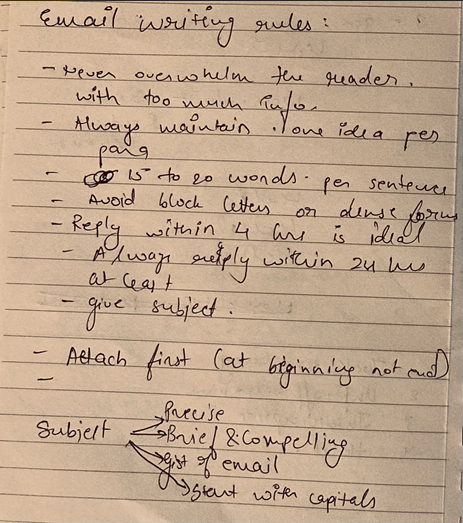 Email writing rules:
- Never overwhelm the reader.
with too much info.
- Always maintain 1 one idea per
para
- 15 to 20 words per sentence
- Avoid block letters or dense forms
- Reply within 4 hrs is ideal
- Always reply within 24 hrs
at least
- give subject.
- Attach first (at beginning not end)
-
Precise
Subject
Brief & Compelling
Gist of email
Start with capitals